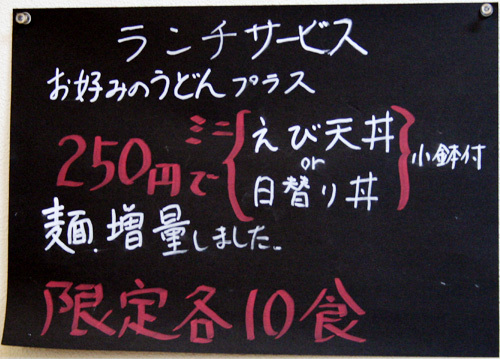 ランチサービス
お好みのうどんプラス
250円で ミニ{えび天丼 or 日替り丼}小鉢付
麺.増量しました。
限定各10食